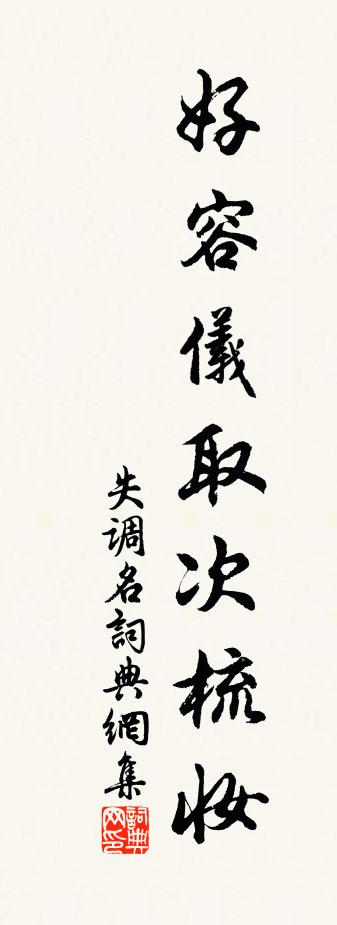 好容儀取次梳妝
失調名詞典網集
詞典网印